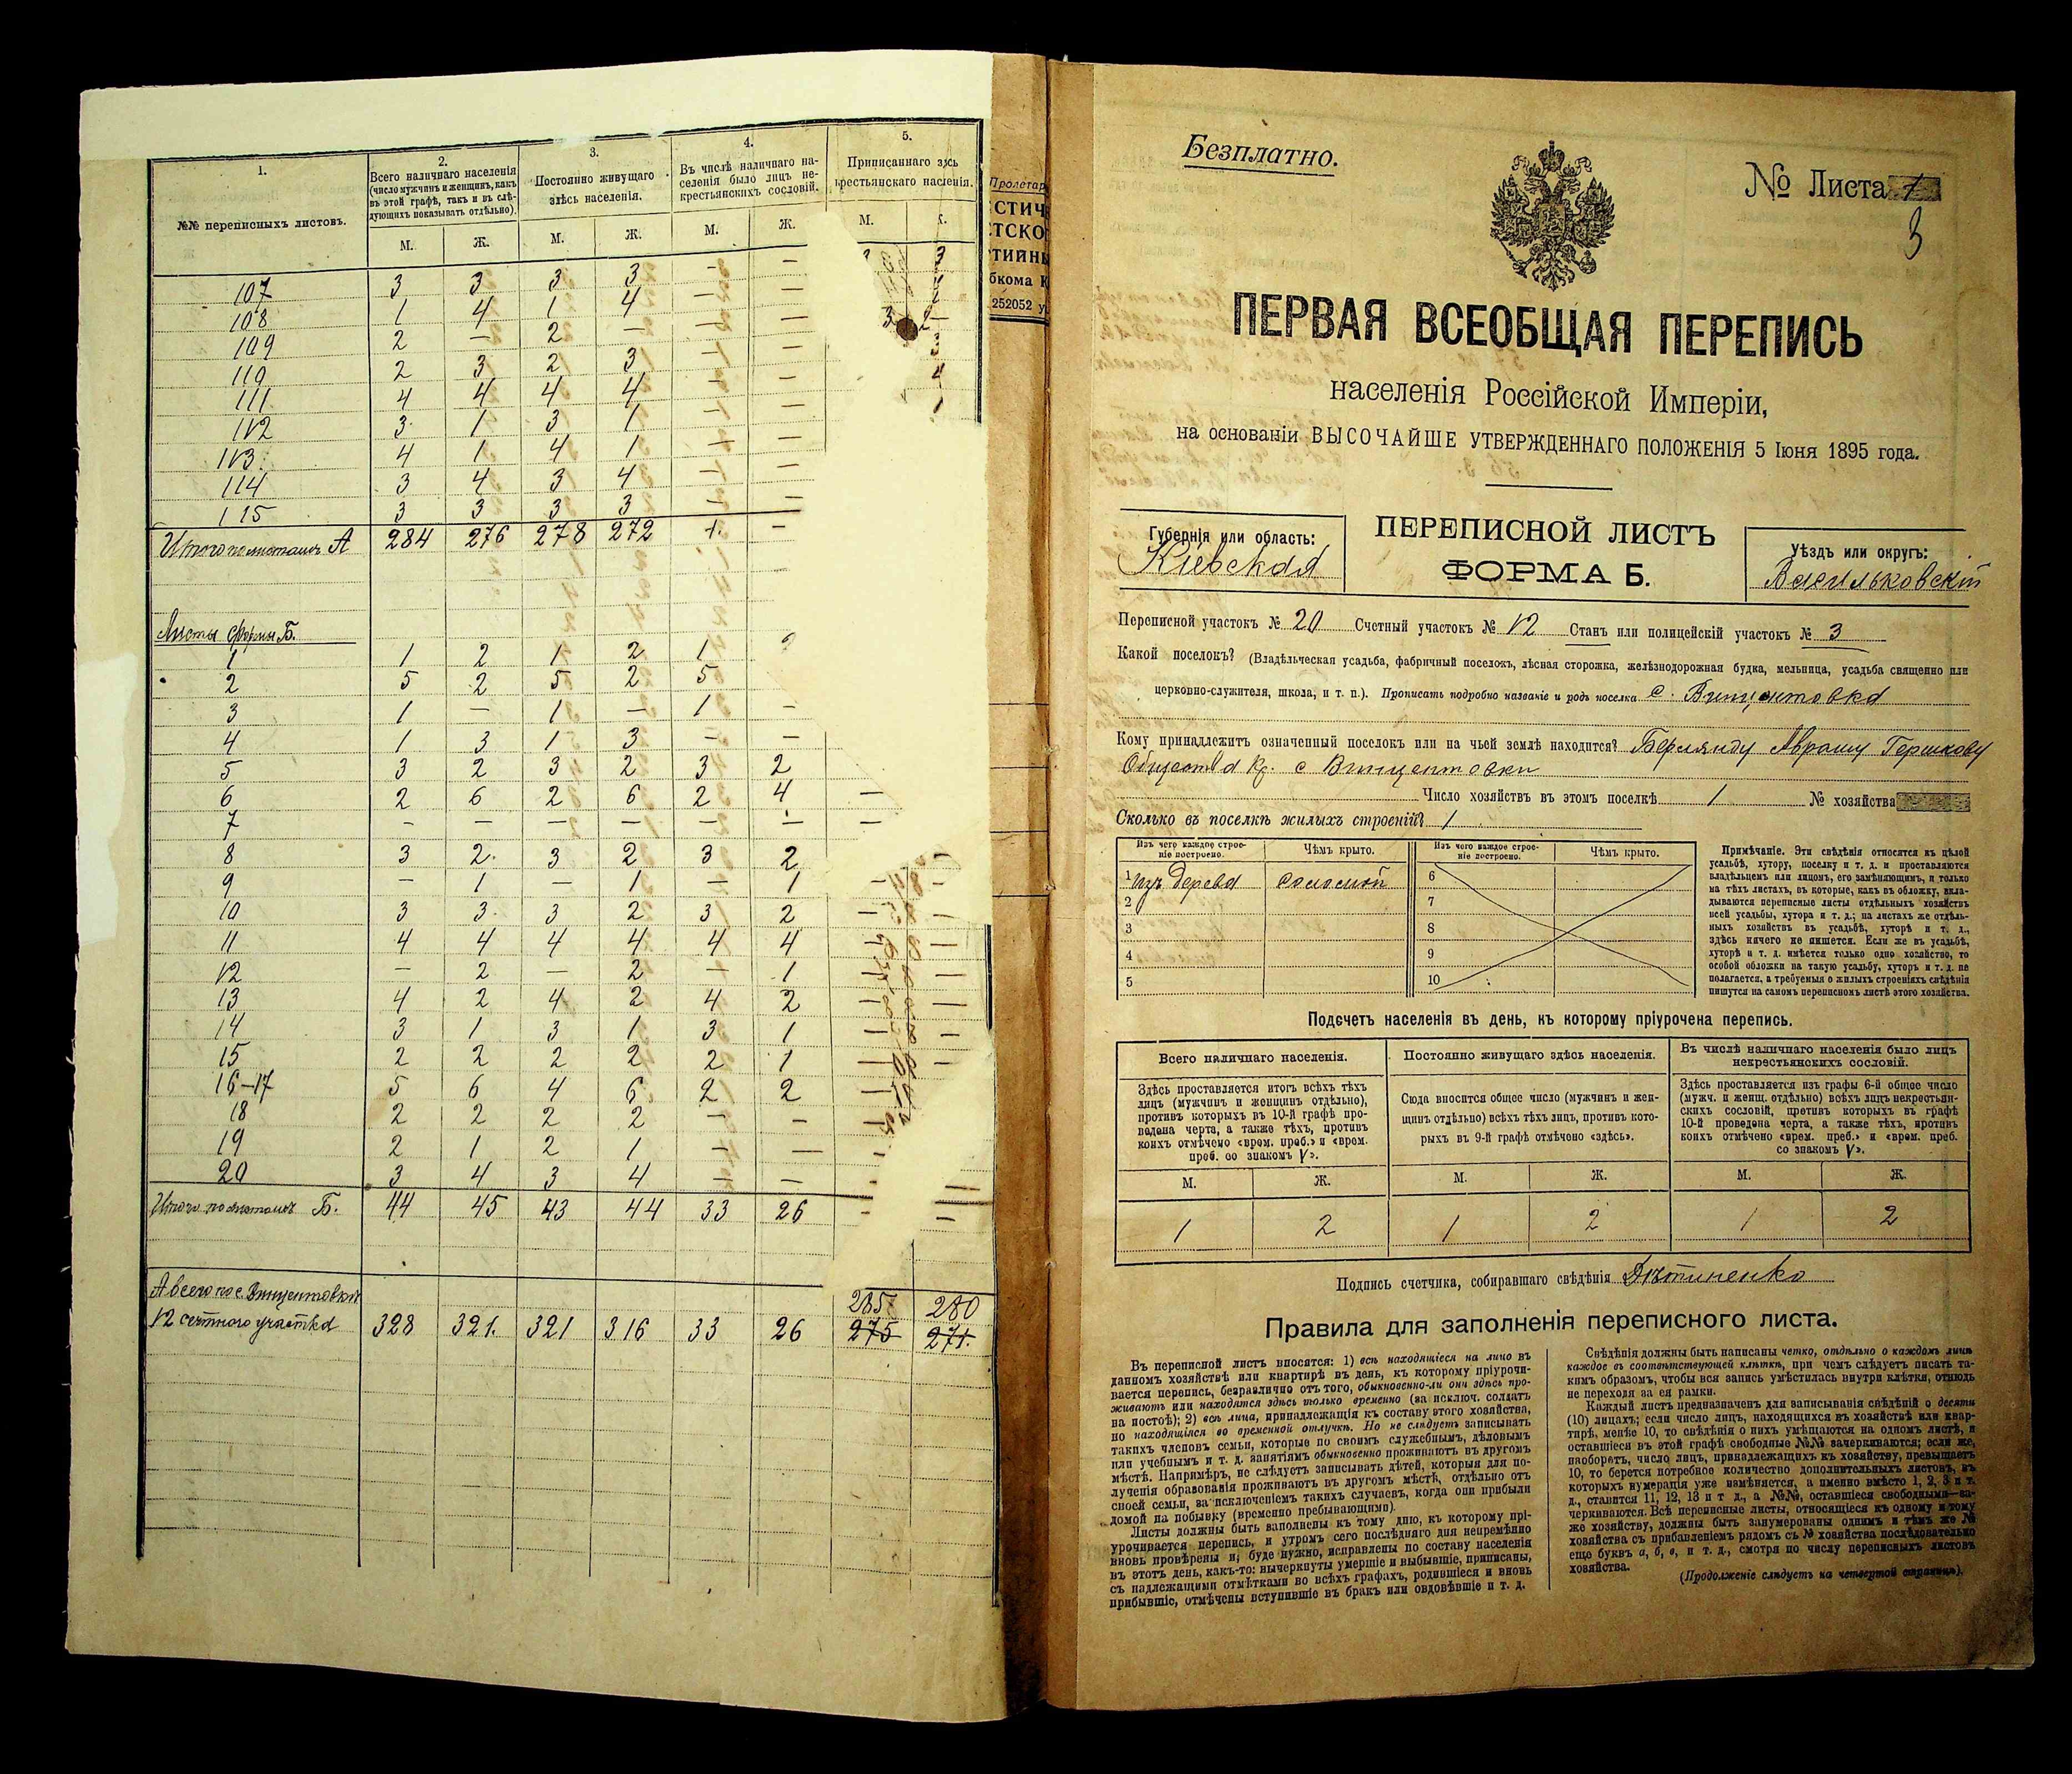 1.
2.
3.
4.
5.
№№ переписныхъ листовъ.
Всего наличнаго населенія
(число мужчинъ и женщинъ, какъ
въ этой графѣ, такъ и въ слѣ-
дующихъ показывать отдѣльно).
Постоянно живущаго
здѣсь населенія.
Въ числѣ наличнаго на-
селенія было лицъ не-
крестьянскихъ сословій.
Приписаннаго здѣсь
крестьянскаго населенія.
М. Ж. М. Ж. М. Ж. М.
107 3 3 3 3 — — 3
108 1 4 1 4 — —
109 2 — 2 — — — 3 2
110 2 3 2 3 — —
111 4 4 4 4 — — 4
112 3 1 3 1 — — 1
113 4 1 4 1 — —
114 3 4 3 4 — —
115 3 3 3 3 — —
Итого по листамъ А 284 276 278 272 1. —
Листы формы Б.
1 1 2 1 2 1
2 5 2 5 2 5
3 1 — 1 — 1 —
4 1 3 1 3 — —
5 3 2 3 2 3 2
6 2 6 2 6 2 4 —
7 — — — — — — —
8 3 2 3 2 3 2 —
9 — 1 — 1 — 1 — —
10 3 3 3 2 3 2 — —
11 4 4 4 4 4 4 — —
12 — 2 — 2 — 1 — —
13 4 2 4 2 4 2 — —
14 3 1 3 1 3 1 — —
15 2 2 2 2 2 1 — —
16—17 5 6 4 6 2 2 —
18 2 2 2 2 — — —
19 2 1 2 1 — — —
20 3 4 3 4 — — — —
Итого по листамъ Б. 44 45 43 44 33 26 — —
А всего по с. Винцентовки
12 счетного участка 328 321. 321 316 33 26
285 280
275 271.
Пролетар
СТИЧ
ТСКО
ТИЙН
бкома К
252052 у
Безплатно.
№ Листа 1
3
ПЕРВАЯ ВСЕОБЩАЯ ПЕРЕПИСЬ
населенія Россійской Имперіи,
на основаніи ВЫСОЧАЙШЕ УТВЕРЖДЕННАГО ПОЛОЖЕНІЯ 5 Іюня 1895 года.
Губернія или область:
Кіевская
ПЕРЕПИСНОЙ ЛИСТЪ
ФОРМА Б.
Уѣздъ или округъ:
Васильковскій
Переписной участокъ № 20 Счетный участокъ № 12 Станъ или полицейскій участокъ № 3
Какой поселокъ? (Владѣльческая усадьба, фабричный поселокъ, лѣсная сторожка, желѣзнодорожная будка, мельница, усадьба священно или
церковно-служителя, школа, и т. п.). Прописать подробно названіе и родъ поселка с. Винцентовка
Кому принадлежитъ означенный поселокъ или на чьей землѣ находится? Берлянду Аврашу Гершкову
Общества кр. с Винцентовки
Число хозяйствъ въ этомъ поселкѣ 1 № хозяйства
Сколько въ поселкѣ жилыхъ строеній? 1
Изъ чего каждое строе-
ніе построено.
Чѣмъ крыто.
Изъ чего каждое строе-
ніе построено.
Чѣмъ крыто.
1 изъ дерева соломой 6
2 7
3 8
4 9
5 10
Примѣчаніе. Эти свѣдѣнія относятся къ цѣлой
усадьбѣ, хутору, поселку и т. д. и проставляются
владѣльцемъ или лицомъ, его замѣняющимъ, и только
на тѣхъ листахъ, въ которые, какъ въ обложку, вкла-
дываются переписные листы отдѣльныхъ хозяйствъ
всей усадьбы, хутора и т. д.; на листахъ же отдѣль-
ныхъ хозяйствъ въ усадьбѣ, хуторѣ и т. д.,
здѣсь ничего не пишется. Если же въ усадьбѣ,
хуторѣ и т. д. имѣется только одно хозяйство, то
особой обложки на такую усадьбу, хуторъ и т. д. не
полагается, а требуемыя о жилыхъ строеніяхъ свѣдѣнія
пишутся на самомъ переписномъ листѣ этого хозяйства.
Подсчетъ населенія въ день, къ которому пріурочена перепись.
Всего наличнаго населенія.
Здѣсь проставляется итогъ всѣхъ тѣхъ
лицъ (мужчинъ и женщинъ отдѣльно),
противъ которыхъ въ 10-й графѣ про-
ведена черта, а также тѣхъ, противъ
коихъ отмѣчено «врем. преб.» и «врем.
преб. со знакомъ V».
Постоянно живущаго здѣсь населенія.
Сюда вносится общее число (мужчинъ и жен-
щинъ отдѣльно) всѣхъ тѣхъ лицъ, противъ кото-
рыхъ въ 9-й графѣ отмѣчено «здѣсь».
Въ числѣ наличнаго населенія было лицъ
некрестьянскихъ сословій.
Здѣсь проставляется изъ графы 6-й общее число
(мужч. и женщ. отдѣльно) всѣхъ лицъ некрестьян-
скихъ сословій, противъ которыхъ въ графѣ
10-й проведена черта, а также тѣхъ, противъ
коихъ отмѣчено «врем. преб.» и «врем. преб.
со знакомъ V».
М. Ж. М. Ж. М. Ж.
1 2 1 2 1 2
Подпись счетчика, собиравшаго свѣдѣнія
Правила для заполненія переписного листа.
Въ переписной листъ вносятся: 1) всѣ находящіеся на лицо въ
данномъ хозяйствѣ или квартирѣ въ день, къ которому пріурочи-
вается перепись, безразлично отъ того, обыкновенно-ли они здѣсь про-
живаютъ или находятся здѣсь только временно (за исключ. солдатъ
на постоѣ); 2) всѣ лица, принадлежащія къ составу этого хозяйства,
но находящіяся во временной отлучкѣ. Но не слѣдуетъ записывать
такихъ членовъ семьи, которые по своимъ служебнымъ, дѣловымъ
или учебнымъ и т. д. занятіямъ обыкновенно проживаютъ въ другомъ
мѣстѣ. Напримѣръ, не слѣдуетъ записывать дѣтей, которыя для по-
лученія образованія проживаютъ въ другомъ мѣстѣ, отдѣльно отъ
своей семьи, за исключеніемъ такихъ случаевъ, когда они прибыли
домой на побывку (временно пребывающими).
Листы должны быть заполнены къ тому дню, къ которому прі-
урочивается перепись, и утромъ сего послѣдняго дня непремѣнно
вновь провѣрены и, буде нужно, исправлены по составу населенія
въ этотъ день, какъ-то: вычеркнуты умершіе и выбывшіе, приписаны,
съ надлежащими отмѣтками во всѣхъ графахъ, родившіеся и вновь
прибывшіе, отмѣчены вступившіе въ бракъ или овдовѣвшіе и т. д.
Свѣдѣнія должны быть написаны четко, отдѣльно о каждомъ лицѣ
каждое въ соотвѣтствующей клѣткѣ, при чемъ слѣдуетъ писать та-
кимъ образомъ, чтобы вся запись умѣстилась внутри клѣтки, отнюдь
не переходя за ея рамки.
Каждый листъ предназначенъ для записыванія свѣдѣній о десяти
(10) лицахъ; если число лицъ, находящихся въ хозяйствѣ или квар-
тирѣ, менѣе 10, то свѣдѣнія о нихъ умѣщаются на одномъ листѣ, и
оставшіеся въ этой графѣ свободные №№ зачеркиваются; если же,
наоборотъ, число лицъ, принадлежащихъ къ хозяйству, превышаетъ
10, то берется потребное количество дополнительныхъ листовъ, въ
которыхъ нумерація уже измѣняется, а именно вмѣсто 1, 2, 3 и т.
д., ставится 11, 12, 13 и т д., а №№, оставшіеся свободными—за-
черкиваются. Всѣ переписные листы, относящіеся къ одному и тому
же хозяйству, должны быть занумерованы однимъ и тѣмъ же №
хозяйства съ прибавленіемъ рядомъ съ № хозяйства послѣдовательно
еще буквъ а, б, в, и т. д., смотря по числу переписныхъ листовъ
хозяйства.
(Продолженіе слѣдуетъ на четвертой страницѣ).